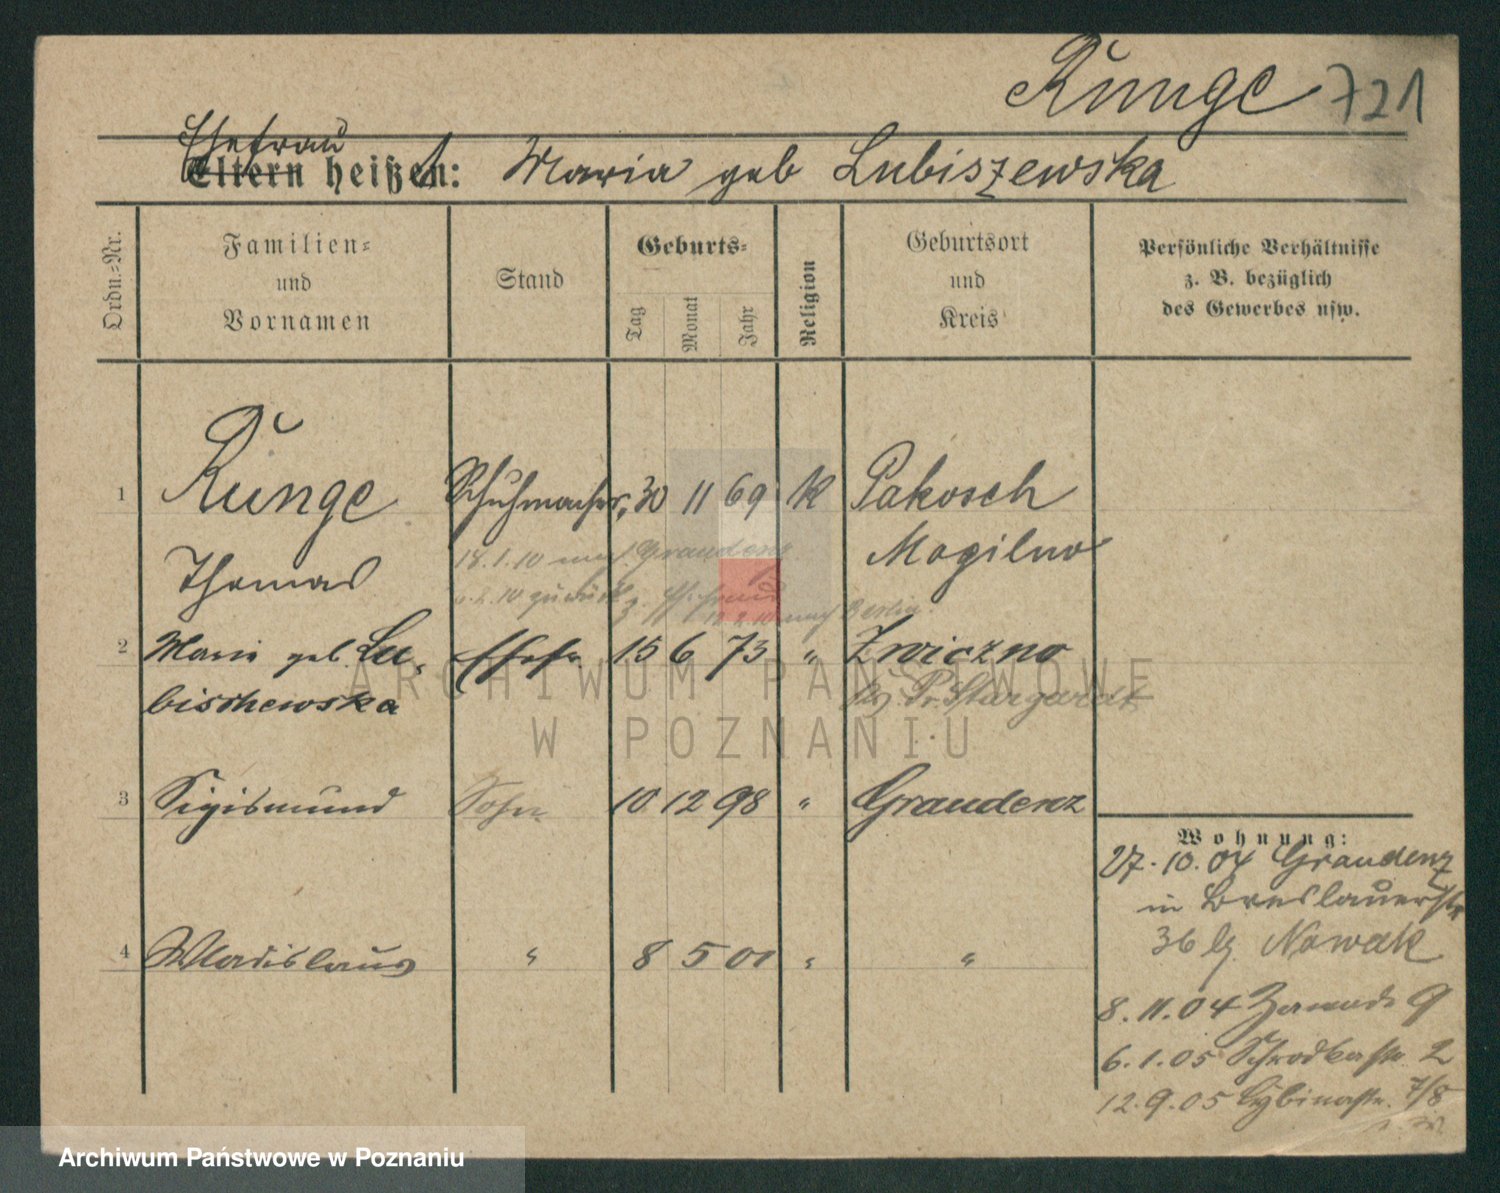 Runge 721
Ehefrau
Eltern heißen: Maria geb Lubiszewska
Ordn.=Nr.
Familien=
und
Vornamen
Stand
Geburts=
Tag
Monat
Jahr
Religion
Geburtsort
und
Kreis
Persönliche Verhältnisse
z. B. bezüglich
des Gewerbes usw.
1 Runge Schuhmacher, 30 11 69 K Pakosch
Thomas Mogilno
18.1.10 nach Graudenz
10 zurück
12.2.10 nach Berlin
2 Marie geb. Lu- Ehefr. 15 6 73 " Zwiczno
bischewska Pr. Stargardt
3 Sigismund Sohn 10 12 98 " Graudenz
4 Wladislaus " 8 5 01 " "
Wohnung:
27.10.04 Graudenz
in Breslauerstr
36 Nowak
8.11.04 Zawade 9
6.1.05 Schrodkastr. 2
12.9.05 Cybinastr. 7/8
ARCHIWUM PAŃSTWOWE
W POZNANIU
Archiwum Państwowe w Poznaniu